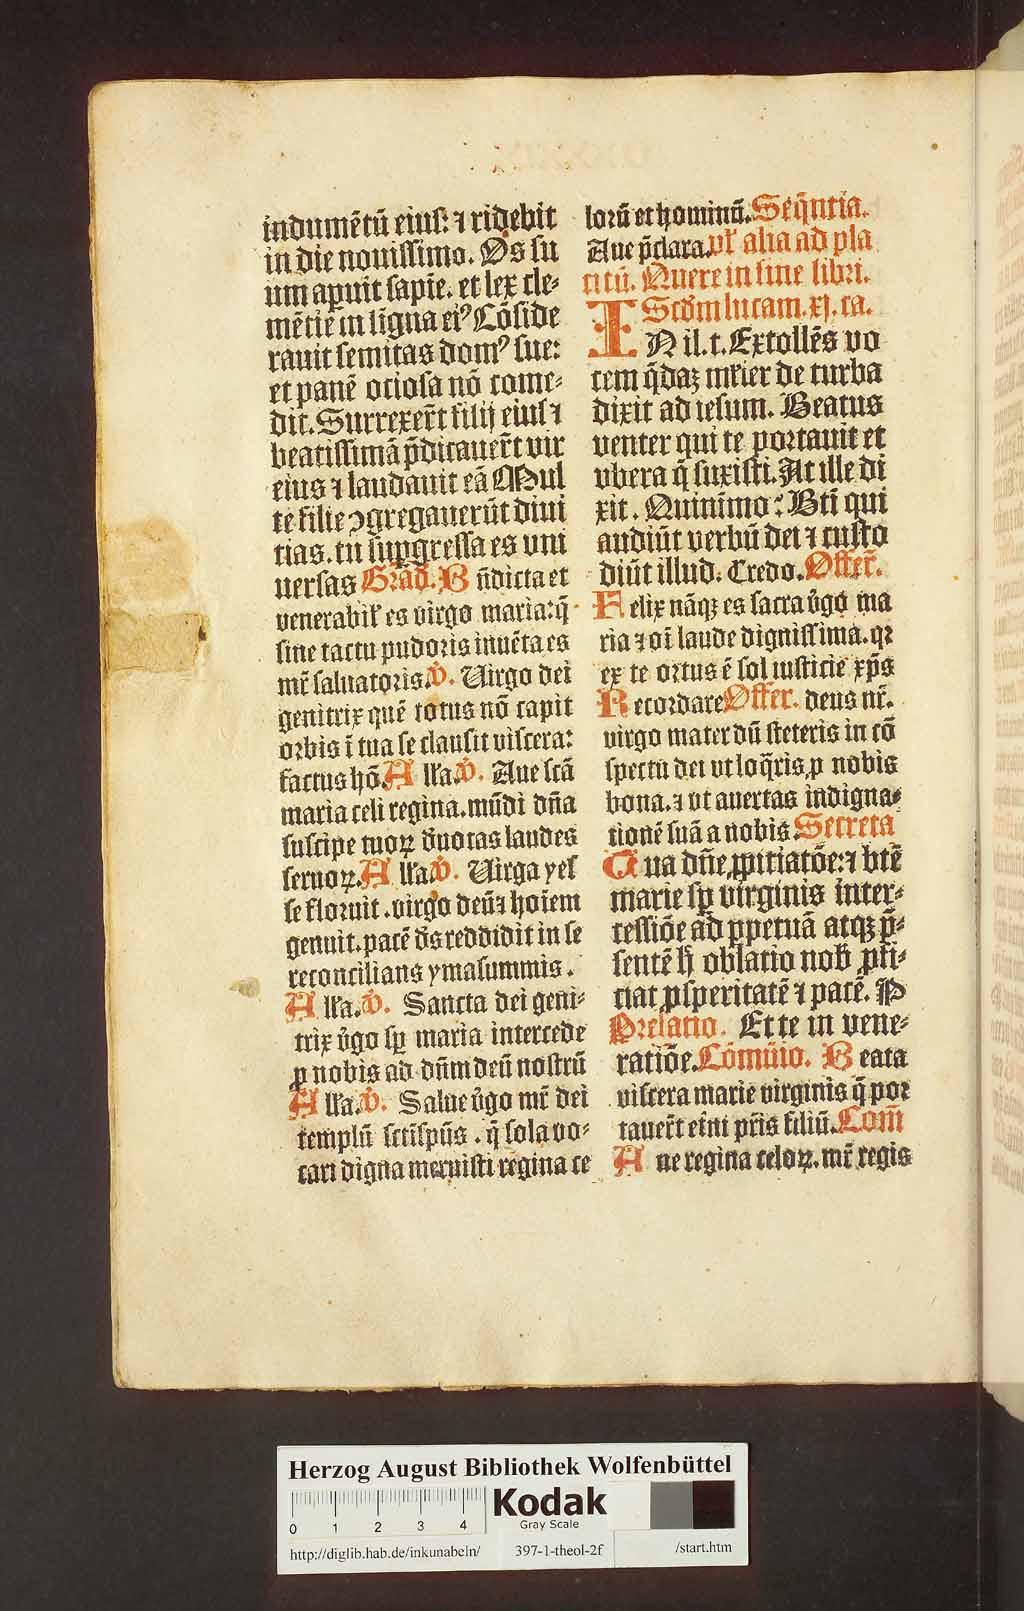 indumētū eius: ⁊ ridebit
in die nouissimo. Os su
um apuit sapie. et lex cle-
mētie in ligna ei⁹ Cōside
rauit semitas dom⁹ sue:
et panē ociosa nō come-
dit. Surrexer̄t filij eius ⁊
beatissimā p̄dicauer̄t vir
eius ⁊ laudauit eā Mul
te filie ↄgregauerūt diui
tias. tu supgressa es vni
uersas Grad̄. B n̄dicta et
venerabil̛ es virgo maria: q̄
sine tactu pudoris inuēta es
mr̄ saluatoris. v̄. Uirgo dei
genitrix quē totus nō capit
orbis ī tua se clausit viscera:
factus hō. A ll̛a. v̄. Aue scā
maria celi regina. mūdi dn̄a
suscipe tuoꝝ d̄uotas laudes
seruoꝝ. A ll̛a. v̄. Uirga yes
se floruit. virgo deū ⁊ hoīem
genuit. pacē d̄s reddidit in se
reconcilians yma summis.
A ll̛a. v̄. Sancta dei geni-
trix v̄go sp̄ maria intercede
ꝓ nobis ad dn̄m deū nostrū
A ll̛a. v̄. Salue v̄go mr̄ dei
templū sct̄ispūs. q̄ sola vo-
cari digna meruisti regina ce
lorū et hominū. Seq̄ntia.
Aue p̄clara. vl̛ alia ad pla
citū. Quere in fine libri.
Scd̄m lucam. xj. ca.
I N il. t. Extollēs vo
cem q̄daꝫ ml̛ier de turba
dixit ad iesum. Beatus
venter qui te portauit et
vbera q̄ suxisti. At ille di
xit. Quinimo: Bt̄i qui
audiūt verbū dei ⁊ custo
diūt illud. Credo. Offer̄.
F elix nāqꝫ es sacra v̄go ma
ria ⁊ oī laude dignissima. qꝛ
ex te ortus ē sol iusticie xp̄s
R ecordare Offer. deus nr̄.
virgo mater dū steteris in cō
spectu dei vt loq̄ris ꝓ nobis
bona. ⁊ vt auertas indigna-
tionē suā a nobis. Secreta
T ua dn̄e ꝓpitiatōe: ⁊ btē
marie sp̄ virginis inter-
cessiōe ad ꝑpetuā atqꝫ p̄-
sentē h̄ oblatio nob̄ ꝓfi-
ciat ꝓsperitatē ⁊ pacē. P
Prefatio. Et te in vene-
ratiōe. Cōmūio. B eata
viscera marie virginis q̄ por
tauer̄t et̄ni pr̄is filiū. Com̄
A ue regina celoꝝ. mr̄ regis
Herzog August Bibliothek Wolfenbüttel
0 1 2 3 4
Kodak
Gray Scale
http://diglib.hab.de/inkunabeln/ 397-1-theol-2f /start.htm